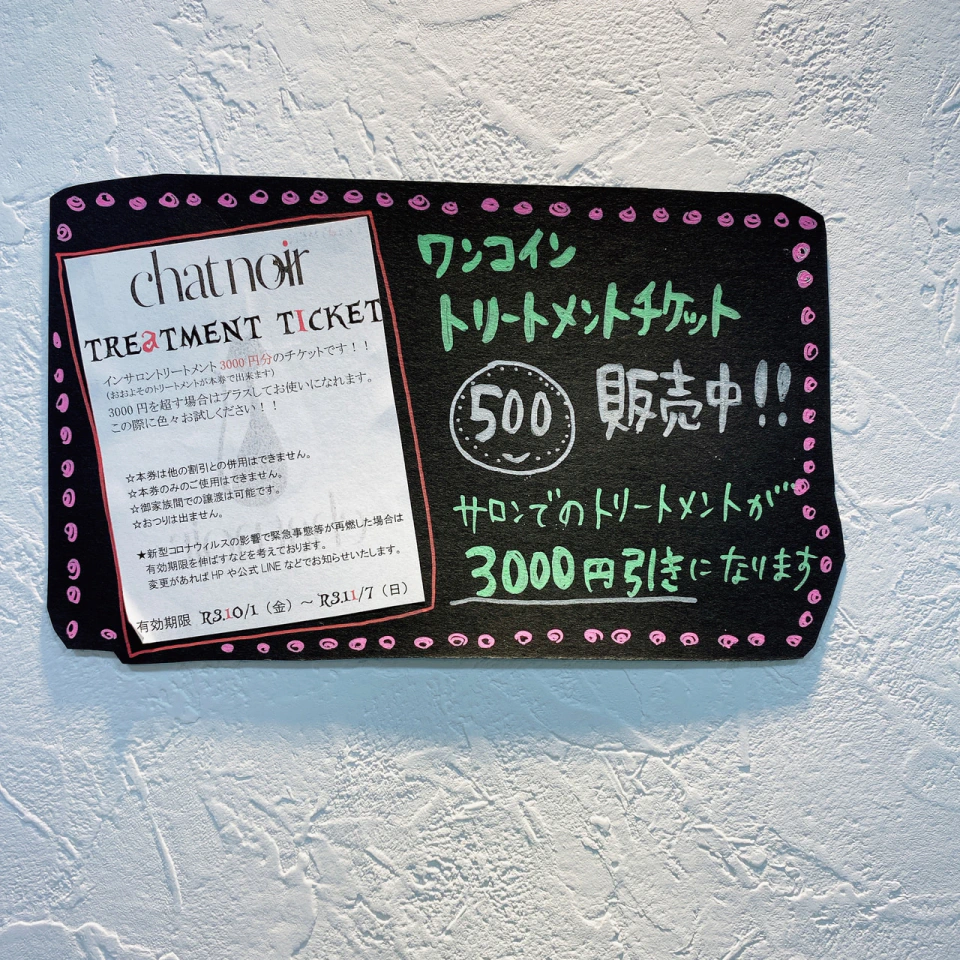 chatnoir
TREATMENT TICKET
インサロントリートメント 3000 円分のチケットです！！
(おおよそのトリートメントが本券で出来ます)
3000 円を超す場合はプラスしてお使いになれます。
この際に色々お試しください！！
☆本券は他の割引との併用はできません。
☆本券のみのご使用はできません。
☆御家族間での譲渡は可能です。
☆おつりは出ません。
★新型コロナウィルスの影響で緊急事態等が再燃した場合は
有効期限を伸ばすなどを考えております。
変更があれば HP や公式 LINE などでお知らせいたします。
有効期限 R3.10/1（金）～ R3.11/7（日）
ワンコイン
トリートメントチケット
500 販売中!!
サロンでのトリートメントが
3000円引きになります